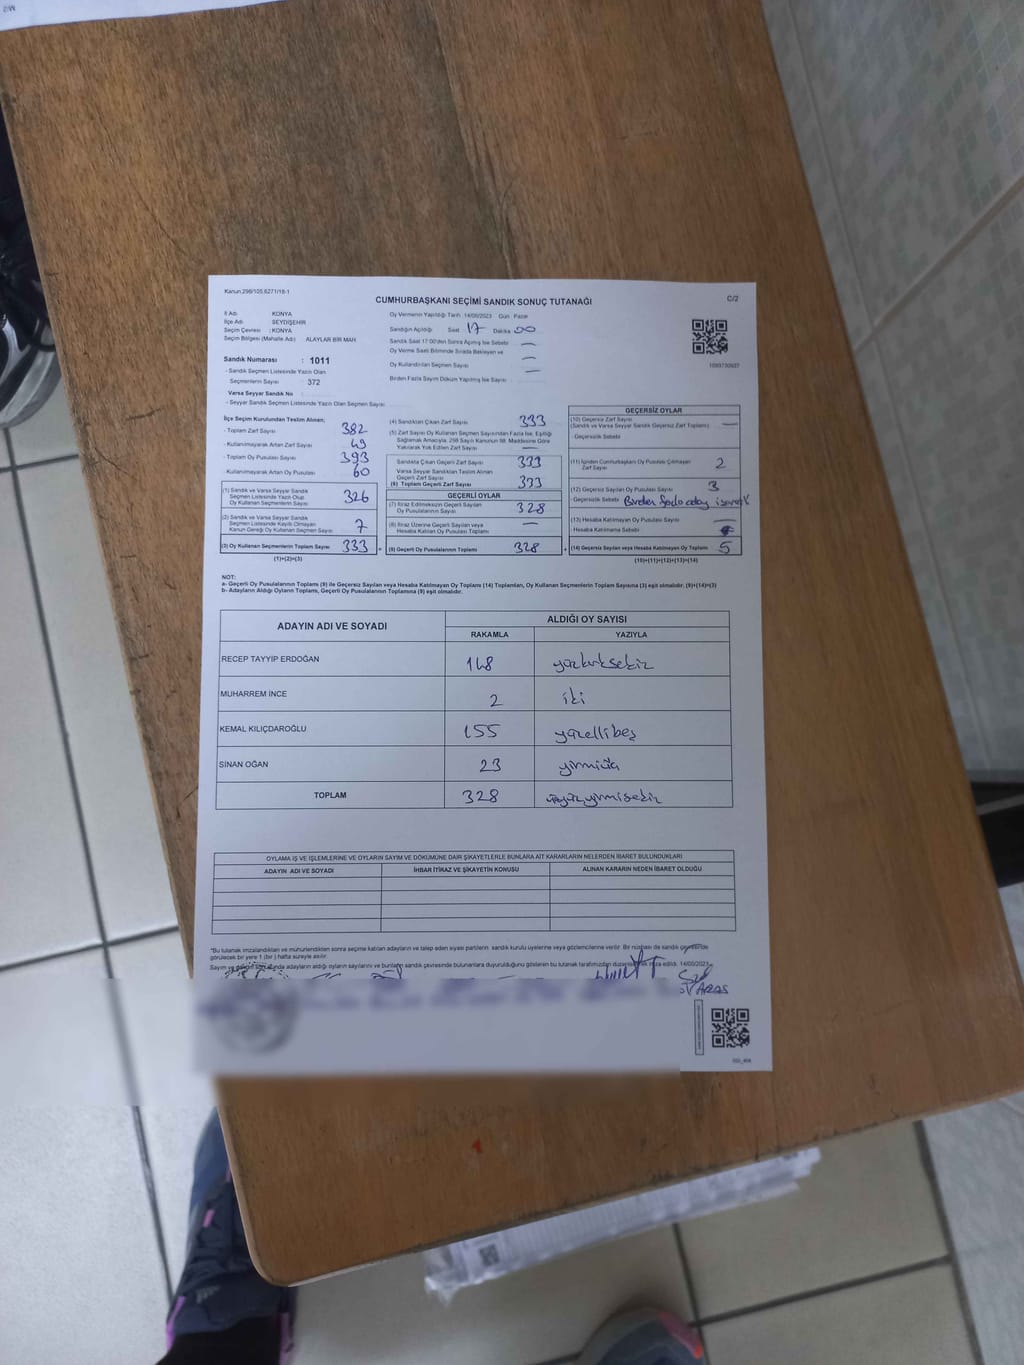 Kanun:298/105,6271/18-1
C/2
CUMHURBAŞKANI SEÇİMİ SANDIK SONUÇ TUTANAĞI
İl Adı : KONYA
İlçe Adı : SEYDİŞEHİR
Seçim Çevresi : KONYA
Seçim Bölgesi (Mahalle Adı) : ALAYLAR BİR MAH
Sandık Numarası : 1011
- Sandık Seçmen Listesinde Yazılı Olan
Seçmenlerin Sayısı : 372
Varsa Seyyar Sandık No :
- Seyyar Sandık Seçmen Listesinde Yazılı Olan Seçmen Sayısı :
Oy Vermenin Yapıldığı Tarih : 14/05/2023 Gün : Pazar
Sandığın Açıldığı : Saat 17 Dakika 00
Sandık Saat 17:00'den Sonra Açılmış İse Sebebi : —
Oy Verme Saati Bitiminde Sırada Bekleyen ve —
Oy Kullandırılan Seçmen Sayısı : —
Birden Fazla Sayım Döküm Yapılmış İse Sayısı :
İlçe Seçim Kurulundan Teslim Alınan;
- Toplam Zarf Sayısı : 382
- Kullanılmayarak Artan Zarf Sayısı : 49
- Toplam Oy Pusulası Sayısı : 393
- Kullanılmayarak Artan Oy Pusulası : 60
(1) Sandık ve Varsa Seyyar Sandık
Seçmen Listesinde Yazılı Olup
Oy Kullanan Seçmenlerin Sayısı : 326
(2) Sandık ve Varsa Seyyar Sandık
Seçmen Listesinde Kayıtlı Olmayan
Kanun Gereği Oy Kullanan Seçmen Sayısı : 7
(3) Oy Kullanan Seçmenlerin Toplam Sayısı : 333
(1)+(2)=(3)
(4) Sandıktan Çıkan Zarf Sayısı : 333
(5) Zarf Sayısı Oy Kullanan Seçmen Sayısından Fazla İse, Eşitliği
Sağlamak Amacıyla, 298 Sayılı Kanunun 98. Maddesine Göre
Yakılarak Yok Edilen Zarf Sayısı : —
Sandıkta Çıkan Geçerli Zarf Sayısı : 333
Varsa Seyyar Sandıktan Teslim Alınan
Geçerli Zarf Sayısı
(6) Toplam Geçerli Zarf Sayısı : 333
GEÇERLİ OYLAR
(7) İtiraz Edilmeksizin Geçerli Sayılan
Oy Pusulalarının Sayısı : 328
(8) İtiraz Üzerine Geçerli Sayılan veya
Hesaba Katılan Oy Pusulası Toplamı : —
(9) Geçerli Oy Pusulalarının Toplamı : 328
GEÇERSİZ OYLAR
(10) Geçersiz Zarf Sayısı
(Sandık ve Varsa Seyyar Sandık Geçersiz Zarf Toplamı) : —
- Geçersizlik Sebebi :
(11) İçinden Cumhurbaşkanı Oy Pusulası Çıkmayan
Zarf Sayısı : 2
(12) Geçersiz Sayılan Oy Pusulası Sayısı : 3
- Geçersizlik Sebebi : Birden fazla aday
(13) Hesaba Katılmayan Oy Pusulası Sayısı : —
- Hesaba Katılmama Sebebi :
(14) Geçersiz Sayılan veya Hesaba Katılmayan Oy Toplamı : 5
(10)+(11)+(12)+(13)=(14)
NOT:
a- Geçerli Oy Pusulalarının Toplamı (9) ile Geçersiz Sayılan veya Hesaba Katılmayan Oy Toplamı (14) Toplamları, Oy Kullanan Seçmenlerin Toplam Sayısına (3) eşit olmalıdır. (9)+(14)=(3)
b- Adayların Aldığı Oyların Toplamı, Geçerli Oy Pusulalarının Toplamına (9) eşit olmalıdır.
ADAYIN ADI VE SOYADI ALDIĞI OY SAYISI
RAKAMLA YAZIYLA
RECEP TAYYİP ERDOĞAN 148 yüzkırksekiz
MUHARREM İNCE 2 iki
KEMAL KILIÇDAROĞLU 155 yüzellibeş
SİNAN OĞAN 23 yirmiüç
TOPLAM 328 üçyüzyirmisekiz
OYLAMA İŞ VE İŞLEMLERİNE VE OYLARIN SAYIM VE DÖKÜMÜNE DAİR ŞİKAYETLERLE BUNLARA AİT KARARLARIN NELERDEN İBARET BULUNDUKLARI
ADAYIN ADI VE SOYADI İHBAR İTİRAZ VE ŞİKAYETİN KONUSU ALINAN KARARIN NEDEN İBARET OLDUĞU
"Bu tutanak imzalandıktan ve mühürlendikten sonra seçime katılan adayların ve talep eden siyasi partilerin sandık kurulu üyelerine veya gözlemcilerine verilir. Bir nüshası da sandık çevresinde
görülecek bir yere 1 (bir) hafta süreyle asılır.
ARAS